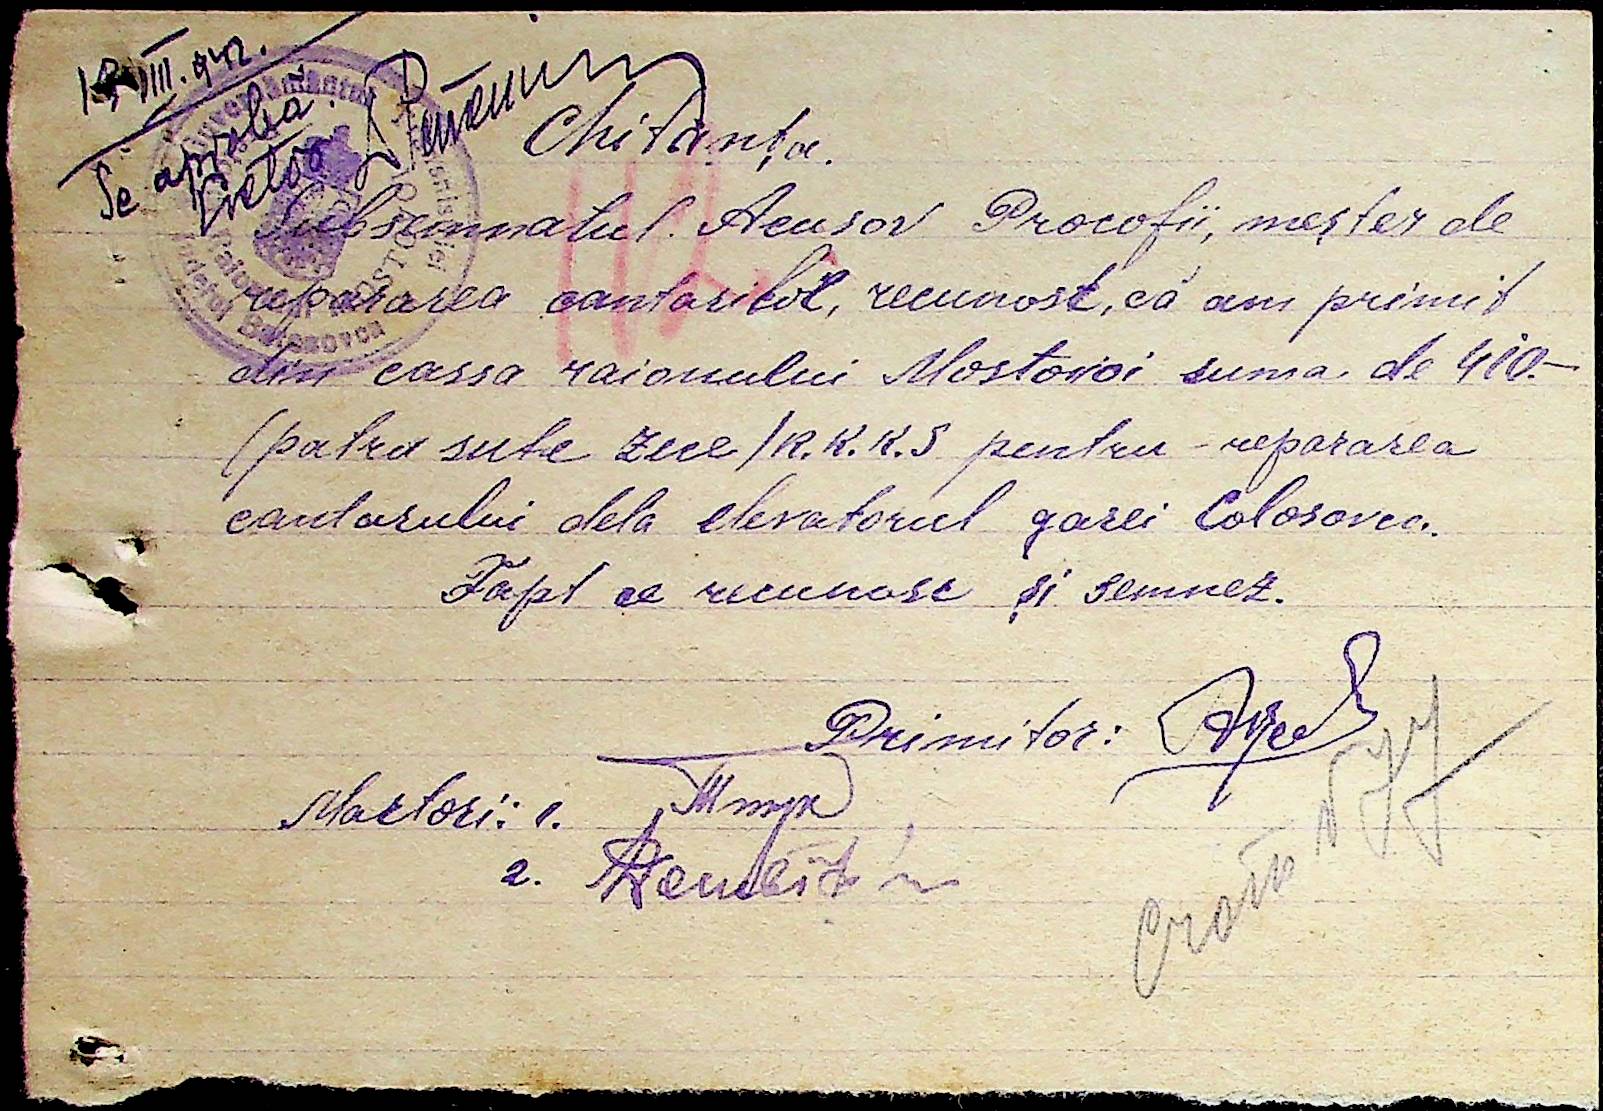 VIII.942.
Se aprobă.
Pretor
Chitanța.
Subsemnatul Acusov Procofii, meșter de
repararea cantarilor, recunosc, că am primit
din cassa raionului Mostovoi suma de 410.—
(patru sute zece) R.K.K.S pentru repararea
cantarului dela elevatorul garei Colosovca.
Fapt ce recunosc și semnez.
Primitor:
Martori: 1.
2.
Guvernământul Transnistriei
Raionul MOSTOVOI
Județul Berezovca